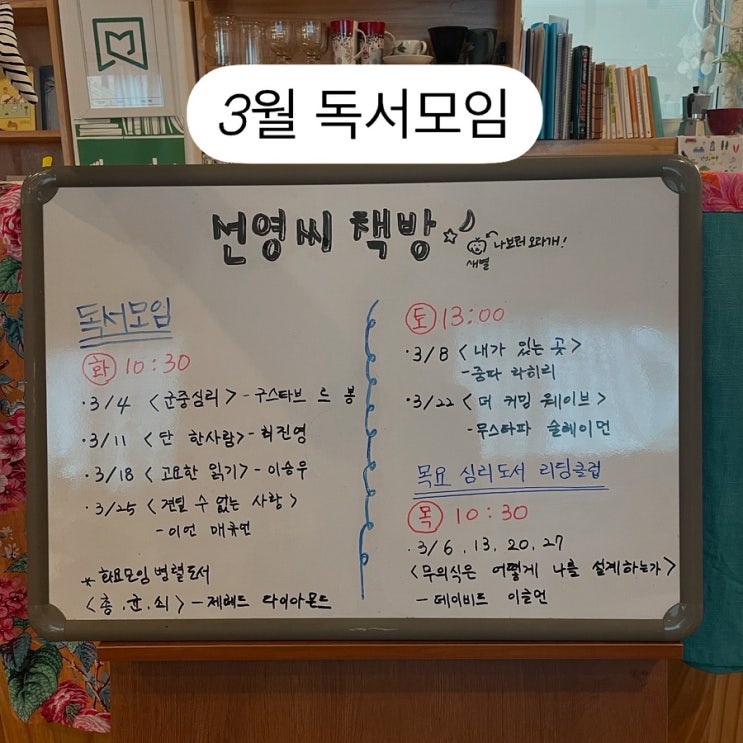 3월 독서모임
선영씨 책방
나보러 오라개!
새별
독서모임
화 10:30
·3/4 <군중심리> - 구스타브 르 봉
·3/11 <단 한사람> - 최진영
·3/18 <고요한 읽기> - 이승우
·3/25 <견딜 수 없는 사랑>
- 이언 매큐언
* 화요모임 병렬도서
<총.균.쇠> - 제레드 다이아몬드
토 13:00
·3/8 <내가 있는 곳>
- 줌파 라히리
·3/22 <더 커밍 웨이브>
- 무스타파 슐레이먼
목요 심리도서 리딩클럽
목 10:30
·3/6, 13, 20, 27
<무의식은 어떻게 나를 설계하는가>
- 데이비드 이글먼